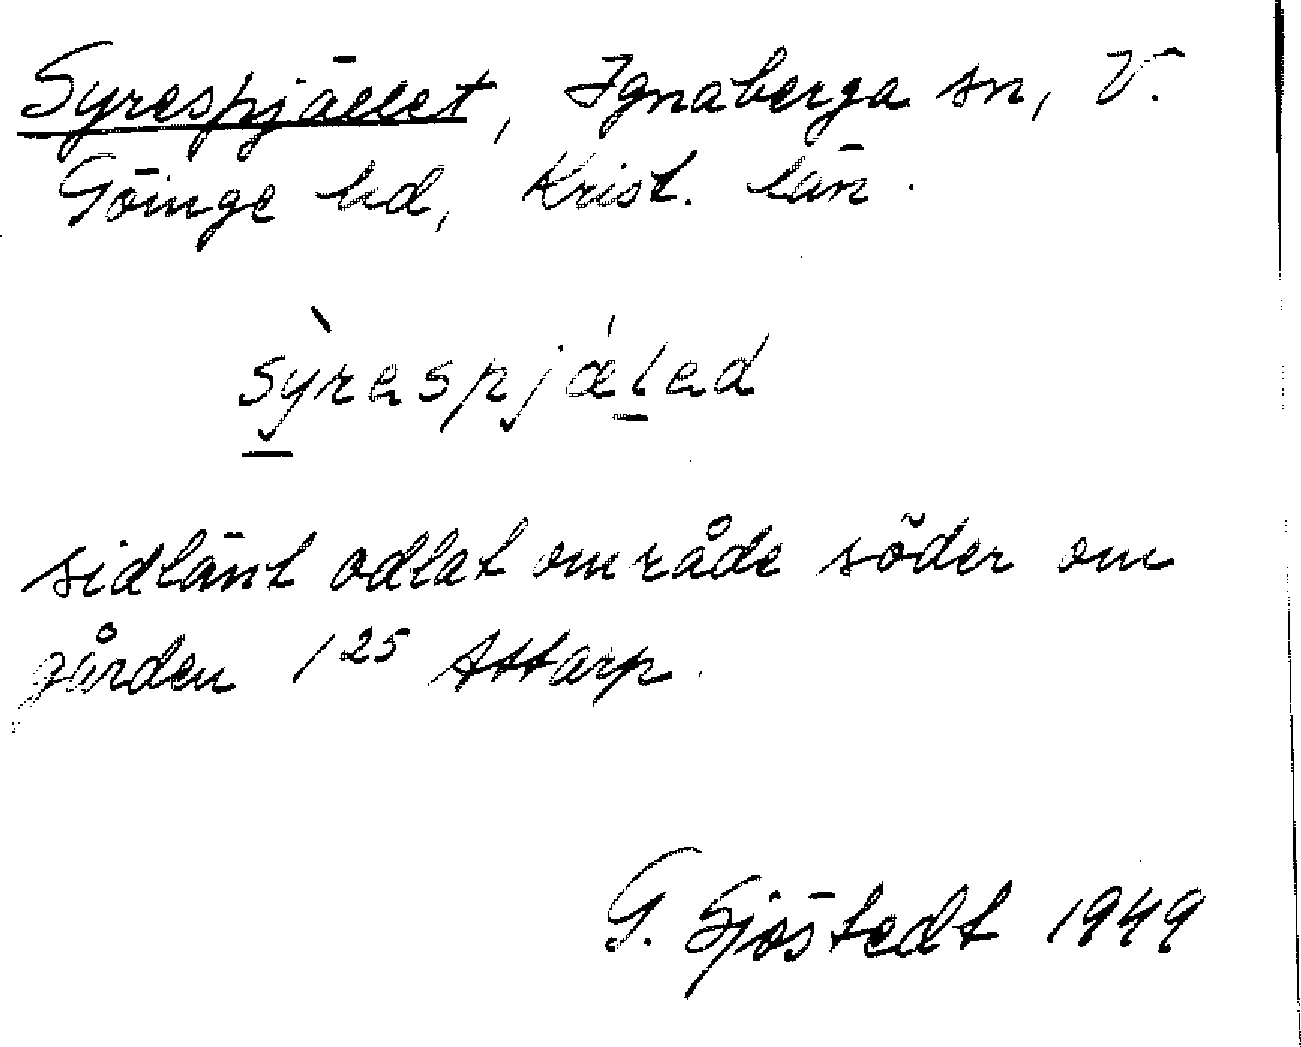 Syrespjället, Ignaberga sn, V.
Göinge hd, Krist. län.
sỳrespjǽled
sidlänt odlat område söder om
gården 1²⁵ Attarp.
G. Sjöstedt 1949